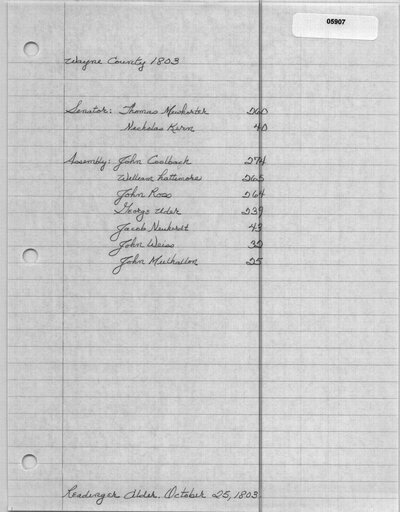 05907
Wayne County 1803
Senator: Thomas Mewhorter 260
Nicholas Kern 40
Assembly: John Coolback 274
William Lattimore 265
John Ross 264
George Ulder 239
Jacob Neukirdt 43
John Weiss 32
John Mulhallon 25
Readinger Adler. October 25, 1803